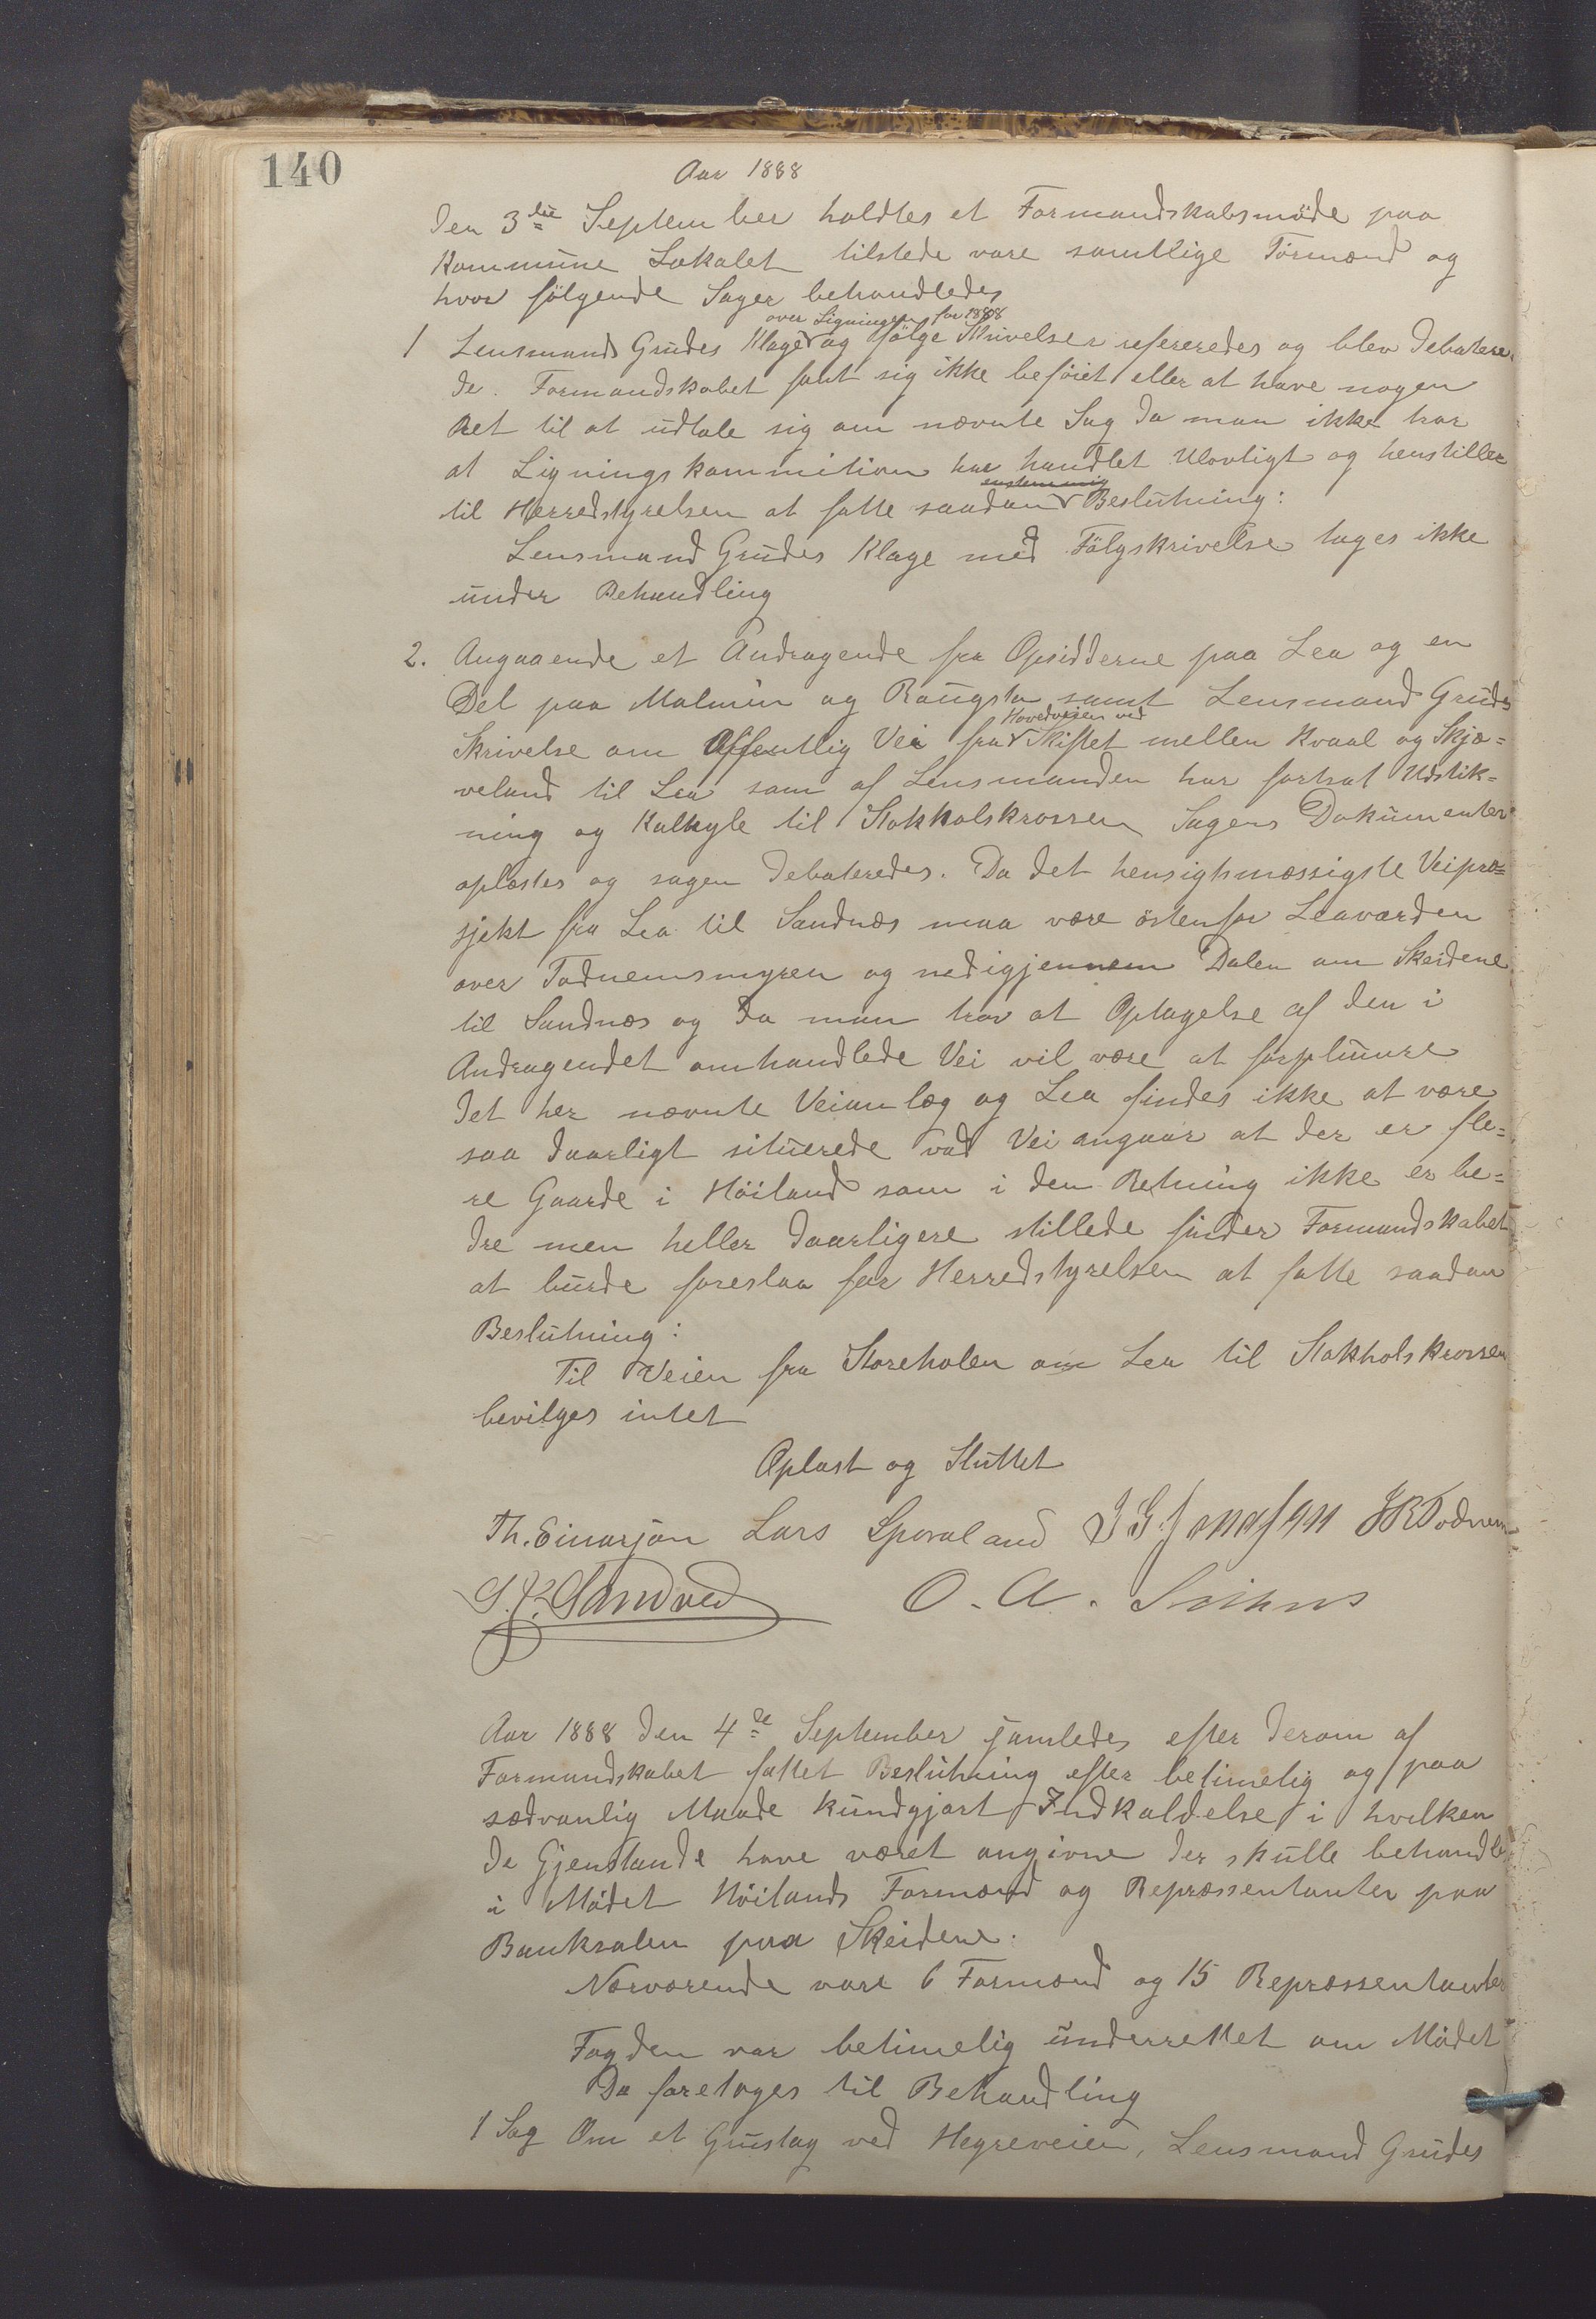 140
Aar 1888
Den 3die September holdtes et Formandskabsmöde paa
Kommune Lokalet tilstede vare samtlige Formænd og
hvor fölgende Sager behandledes
over Ligningen for 1888
1 Lensmand Grudes Klage og fölge Skrivelser refereredes og blev debatere
de. Formandskabet fant sig ikke beföiet eller at have nogen
Ret til at udtale sig om nævnte Sag da man ikke tror
at Ligningskommitionen har handlet Ulovligt og henstiller
enstemmig
til Herredstyrelsen at fatte saadan Beslutning:
Lensmand Grudes Klage med Fölgskrivelse tages ikke
under Behandling
2. Angaaende et Andragende fra Opsidderne paa Lea og en
Del paa Malmin og Raugsta samt Lensmand Grudes
Hovedvejen ved
Skrivelse om Offentlig Vei fra Skiftet mellen Kvaal og Skjæ=
veland til Lea som af Lensmanden har fortsat Udstik=
ning og Kalkyle til Stokkalskrossen Sagens Dokumenter
oplæstes og sagen debateredes. Da det hensigtsmæssigste Veipro=
sjekt fra Lea til Sandnæs maa være östenfor Leavarden
over Todnemsmyren og nedigjennem Dalen om Skeidene
til Sandnæs og da man tror at Optagelse af den i
Andragendet omhandlede Vei vil være at forplumre
det her nævnte Veianlæg og Lea findes ikke at være
saa daarligt situerede vad Vei angaar at der er fle=
re Gaarde i Höiland som i den Retning ikke er be=
dre men heller daarligere stillede finder Formandskabet
at burde foreslaa for Herredstyrelsen at fatte saadan
Beslutning:
Til Veien fra Storeholen om Lea til Stokholskrossen
bevilges intet
Oplæst og Sluttet
Th. Einarsön Lars Sporaland J G Jonassen JR Todnem
S. P. Sandved O. A.
Aar 1888 den 4de September samledes efter derom af
Formandskabet fattet Beslutning efter betimelig og paa
sædvanlig Maade kundgjort Indkaldelse i hvilken
de Gjenstande have været angivne der skulle behandle
i Mödet Höilands Formænd og Repræssentanter paa
Banksalen paa Skeidene.
Nærværende vare 6 Formænd og 15 Repræssentanter
Fogden var betimelig underrettet om Mödet
Da foretoges til Behandling
1 Sag Om et Grustag ved Hegreveien, Lensmand Grudes